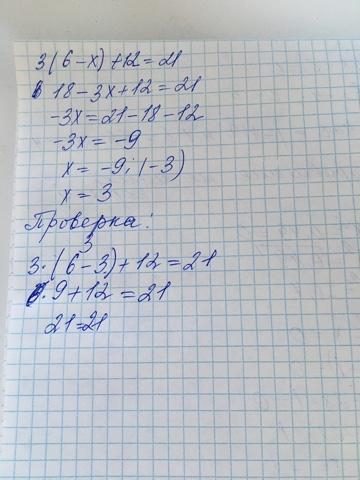 3(6-x)+12=21
18-3x+12=21
-3x=21-18-12
-3x=-9
x=-9:(-3)
x=3
Проверка:
3
3·(6-3)+12=21
9+12=21
21=21